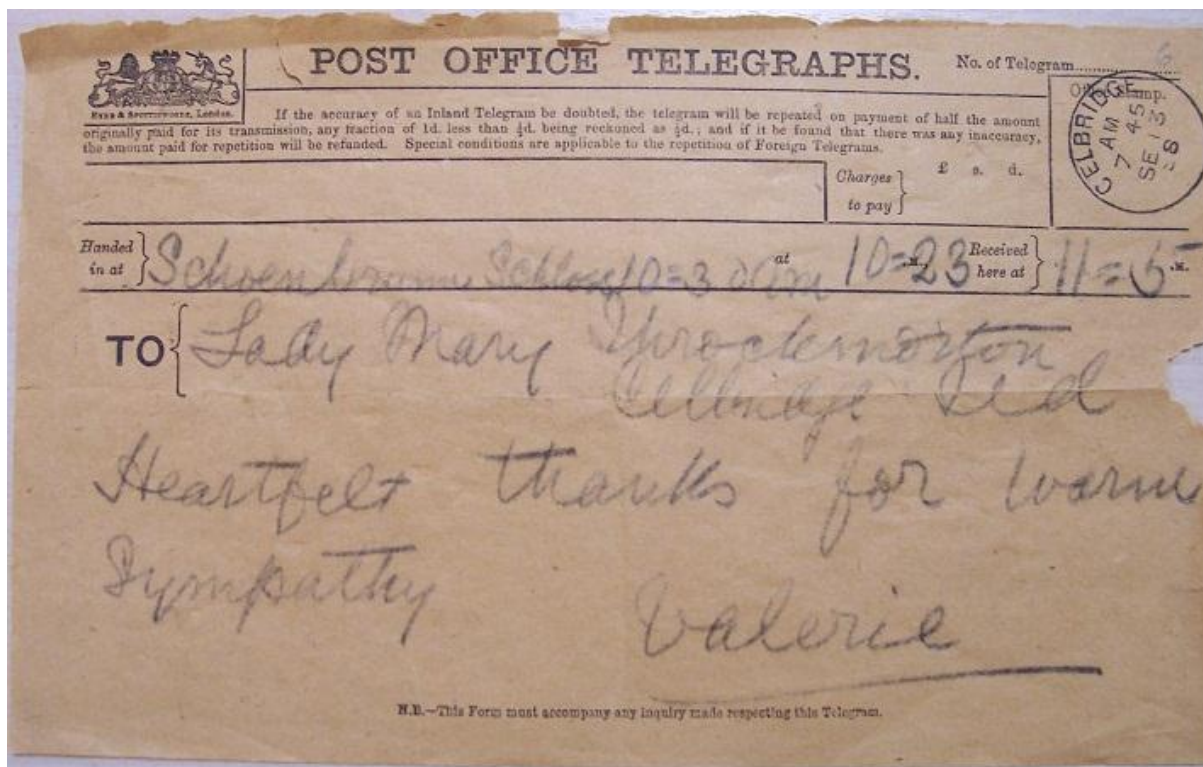 POST OFFICE TELEGRAPHS.
No. of Telegram
EYRE & SPOTTISWOODE, London.
If the accuracy of an Inland Telegram be doubted, the telegram will be repeated on payment of half the amount
originally paid for its transmission, any fraction of 1d. less than ½d. being reckoned as ½d.; and if it be found that there was any inaccuracy,
the amount paid for repetition will be refunded. Special conditions are applicable to the repetition of Foreign Telegrams.
CELBRIDGE
7 45 AM
SE 13
Charges to pay } £ s. d.
Handed in at } Schoenbrunn Schloss 10=30am at 10=23 Received here at } 11=5 .M.
TO { Lady Mary Throckmorton
Celbridge
Heartfelt thanks for warm
Sympathy
Valerie
N.B.—This Form must accompany any inquiry made respecting this Telegram.